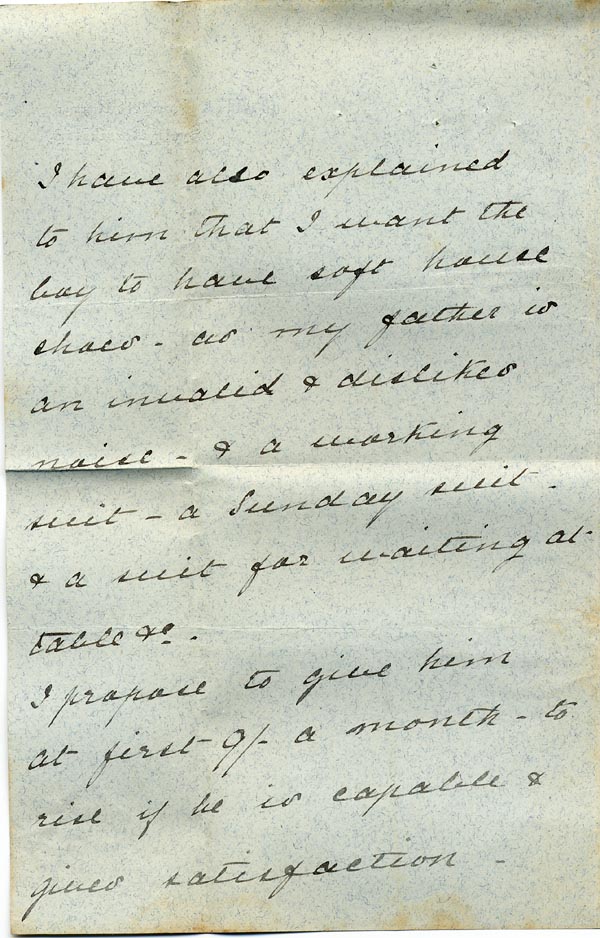 I have also explained
to him that I want the
boy to have soft house
shoes - as my father is
an invalid & dislikes
noise - & a working
suit - a Sunday suit -
& a suit for waiting at
table &c.
I propose to give him
at first 9/- a month - to
rise if he is capable &
gives satisfaction -